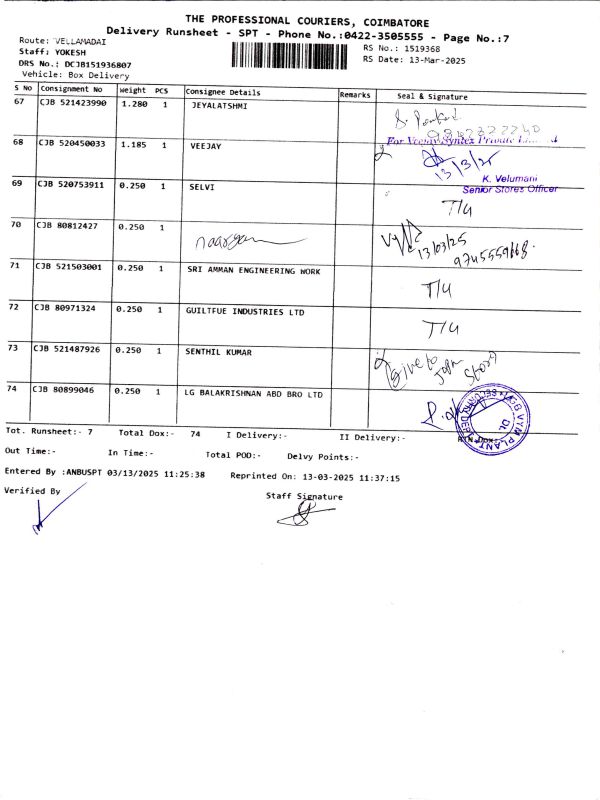 THE PROFESSIONAL COURIERS, COIMBATORE
Delivery Runsheet - SPT - Phone No.:0422-3505555 - Page No.:7
Route: VELLAMADAI
RS No.: 1519368
Staff: YOKESH
RS Date: 13-Mar-2025
DRS No.: DCJB151936807
Vehicle: Box Delivery
S No Consignment No Weight PCS Consignee Details Remarks Seal & Signature
67 CJB 521423990 1.280 1 JEYALATSHMI
68 CJB 520450033 1.185 1 VEEJAY
For Veejay Syntex Private
13/3/25
K. Velumani
Senior Stores Officer
69 CJB 520753911 0.250 1 SELVI
T/4
70 CJB 80812427 0.250 1
13/03/25
71 CJB 521503001 0.250 1 SRI AMMAN ENGINEERING WORK
T/4
72 CJB 80971324 0.250 1 GUILTFUE INDUSTRIES LTD
T/4
73 CJB 521487926 0.250 1 SENTHIL KUMAR
Give to
74 CJB 80899046 0.250 1 LG BALAKRISHNAN ABD BRO LTD
Tot. Runsheet:- 7 Total Dox:- 74 I Delivery:- II Delivery:- RTN Dox:-
Out Time:- In Time:- Total POD:- Delvy Points:-
Entered By :ANBUSPT 03/13/2025 11:25:38 Reprinted On: 13-03-2025 11:37:15
Verified By
Staff Signature